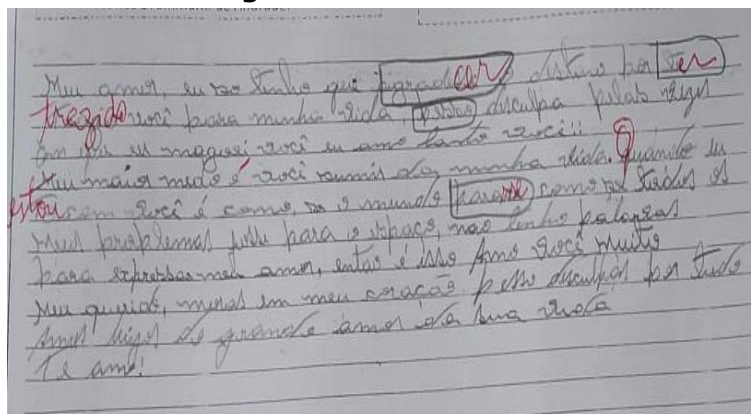 Meu amor, eu só tenho que agradecer o distino por ter
trazido você para minha vida, pesso disculpa pelas vezes
em que eu magoei você eu amo tanto você!!
Meu maior medo é você sumir da minha vida. Quando eu
estou com você é como, se o mundo parasse como se todos os
meus problemas fosse para o espaço, nao tenho palavras
para expressar meu amor, entao é isso Amo você muito
Meu querido, moras em meu coração. pesso disculpas por tudo
do grande amor da sua vida
Te amo!